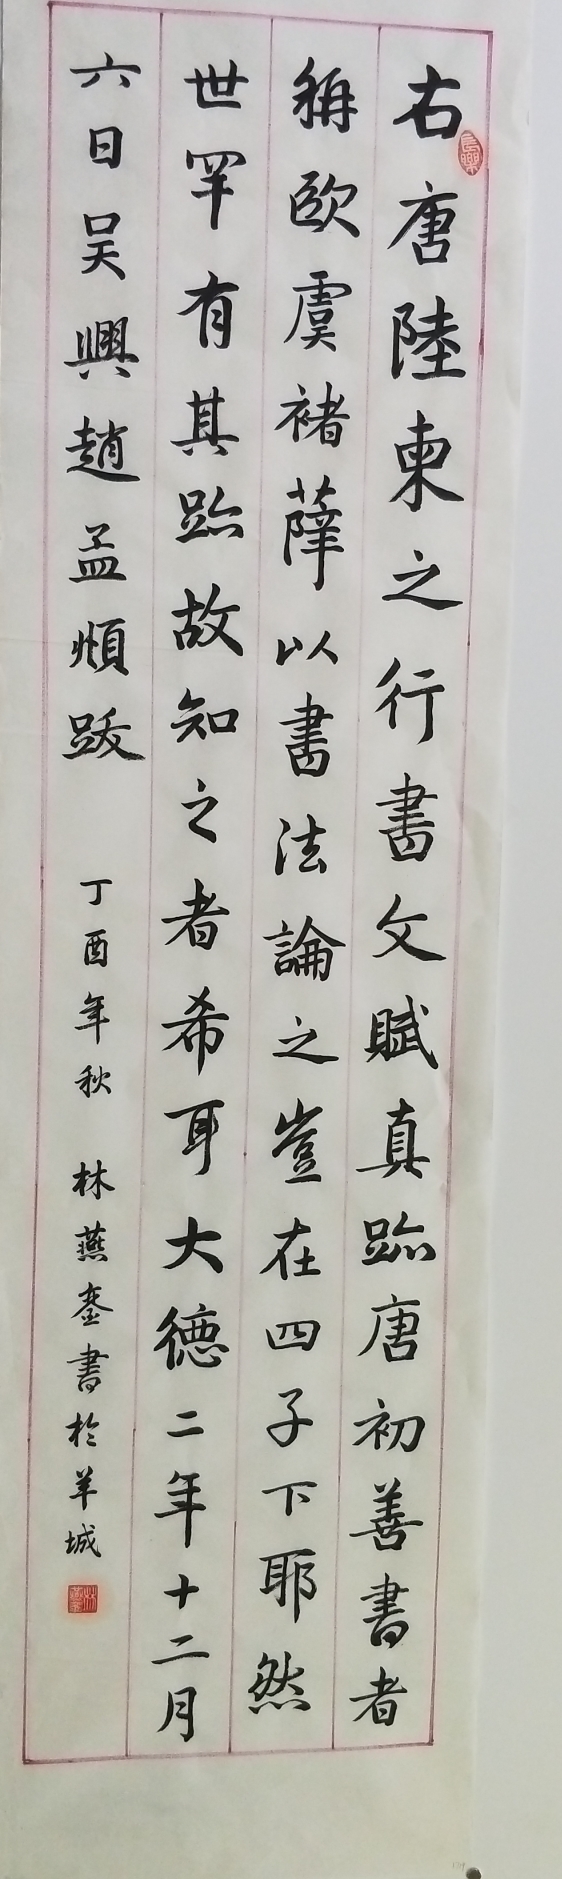 右唐陸柬之行書文賦真跡唐初善書者
稱歐虞褚薛以書法論之豈在四子下耶然
世罕有其跡故知之者希耳大德二年十二月
六日吴興趙孟頫跋
丁酉年秋 林燕銮書於羊城